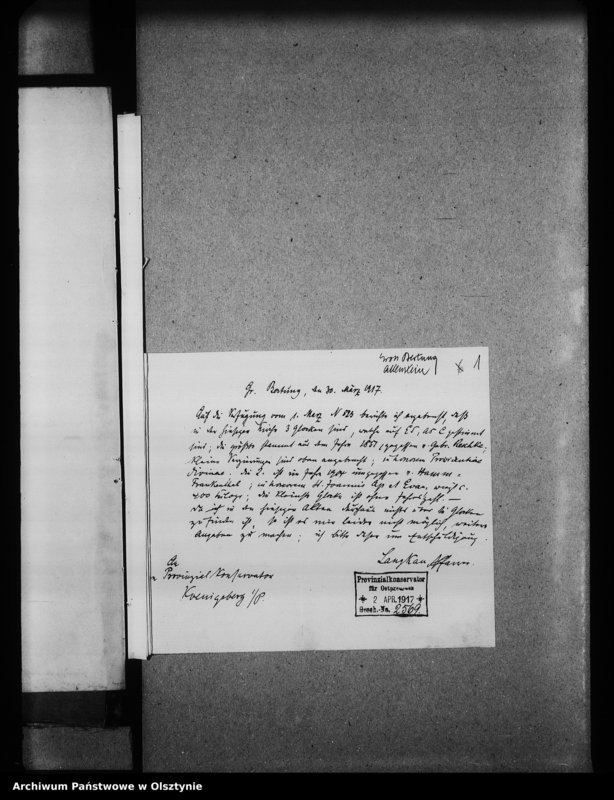 Gross Bertung
Allenstein
1
Gr. Bertung, den 30. März 1917.
Auf die Verfügung vom 1. März N 823 berichte ich ergebenst, daß
in der hiesigen Kirche 3 Glocken sind, welche auf Es, As C gestimmt
sind; die größte stammt aus dem Jahre 1851, gegossen v. Gebr.
kleine Verzierungen sind oben angebracht; in honorem Providentiae
divinae. die 2. ist im Jahre 1904 umgegossen v. Hamm -
Frankenthal; in honorem St. Joannis Ap. et Evan. wiegt c.
400 Kilogr.; die kleinste Glocke ist ohne Jahreszahl. —
Da ich in den hiesigen Akten durchaus nichts über die Glocken
zu finden ist, so ist es mir leider nicht möglich, weitere
Angaben zu machen; ich bitte daher um Entschuldigung.
Langkau, Pfarrer.
An
Provinzial Konservator
Koenigsberg i/P
Provinzialkonservator
für Ostpreussen
2 APR. 1917
Gesch.-No. 2569.
Archiwum Państwowe w Olsztynie